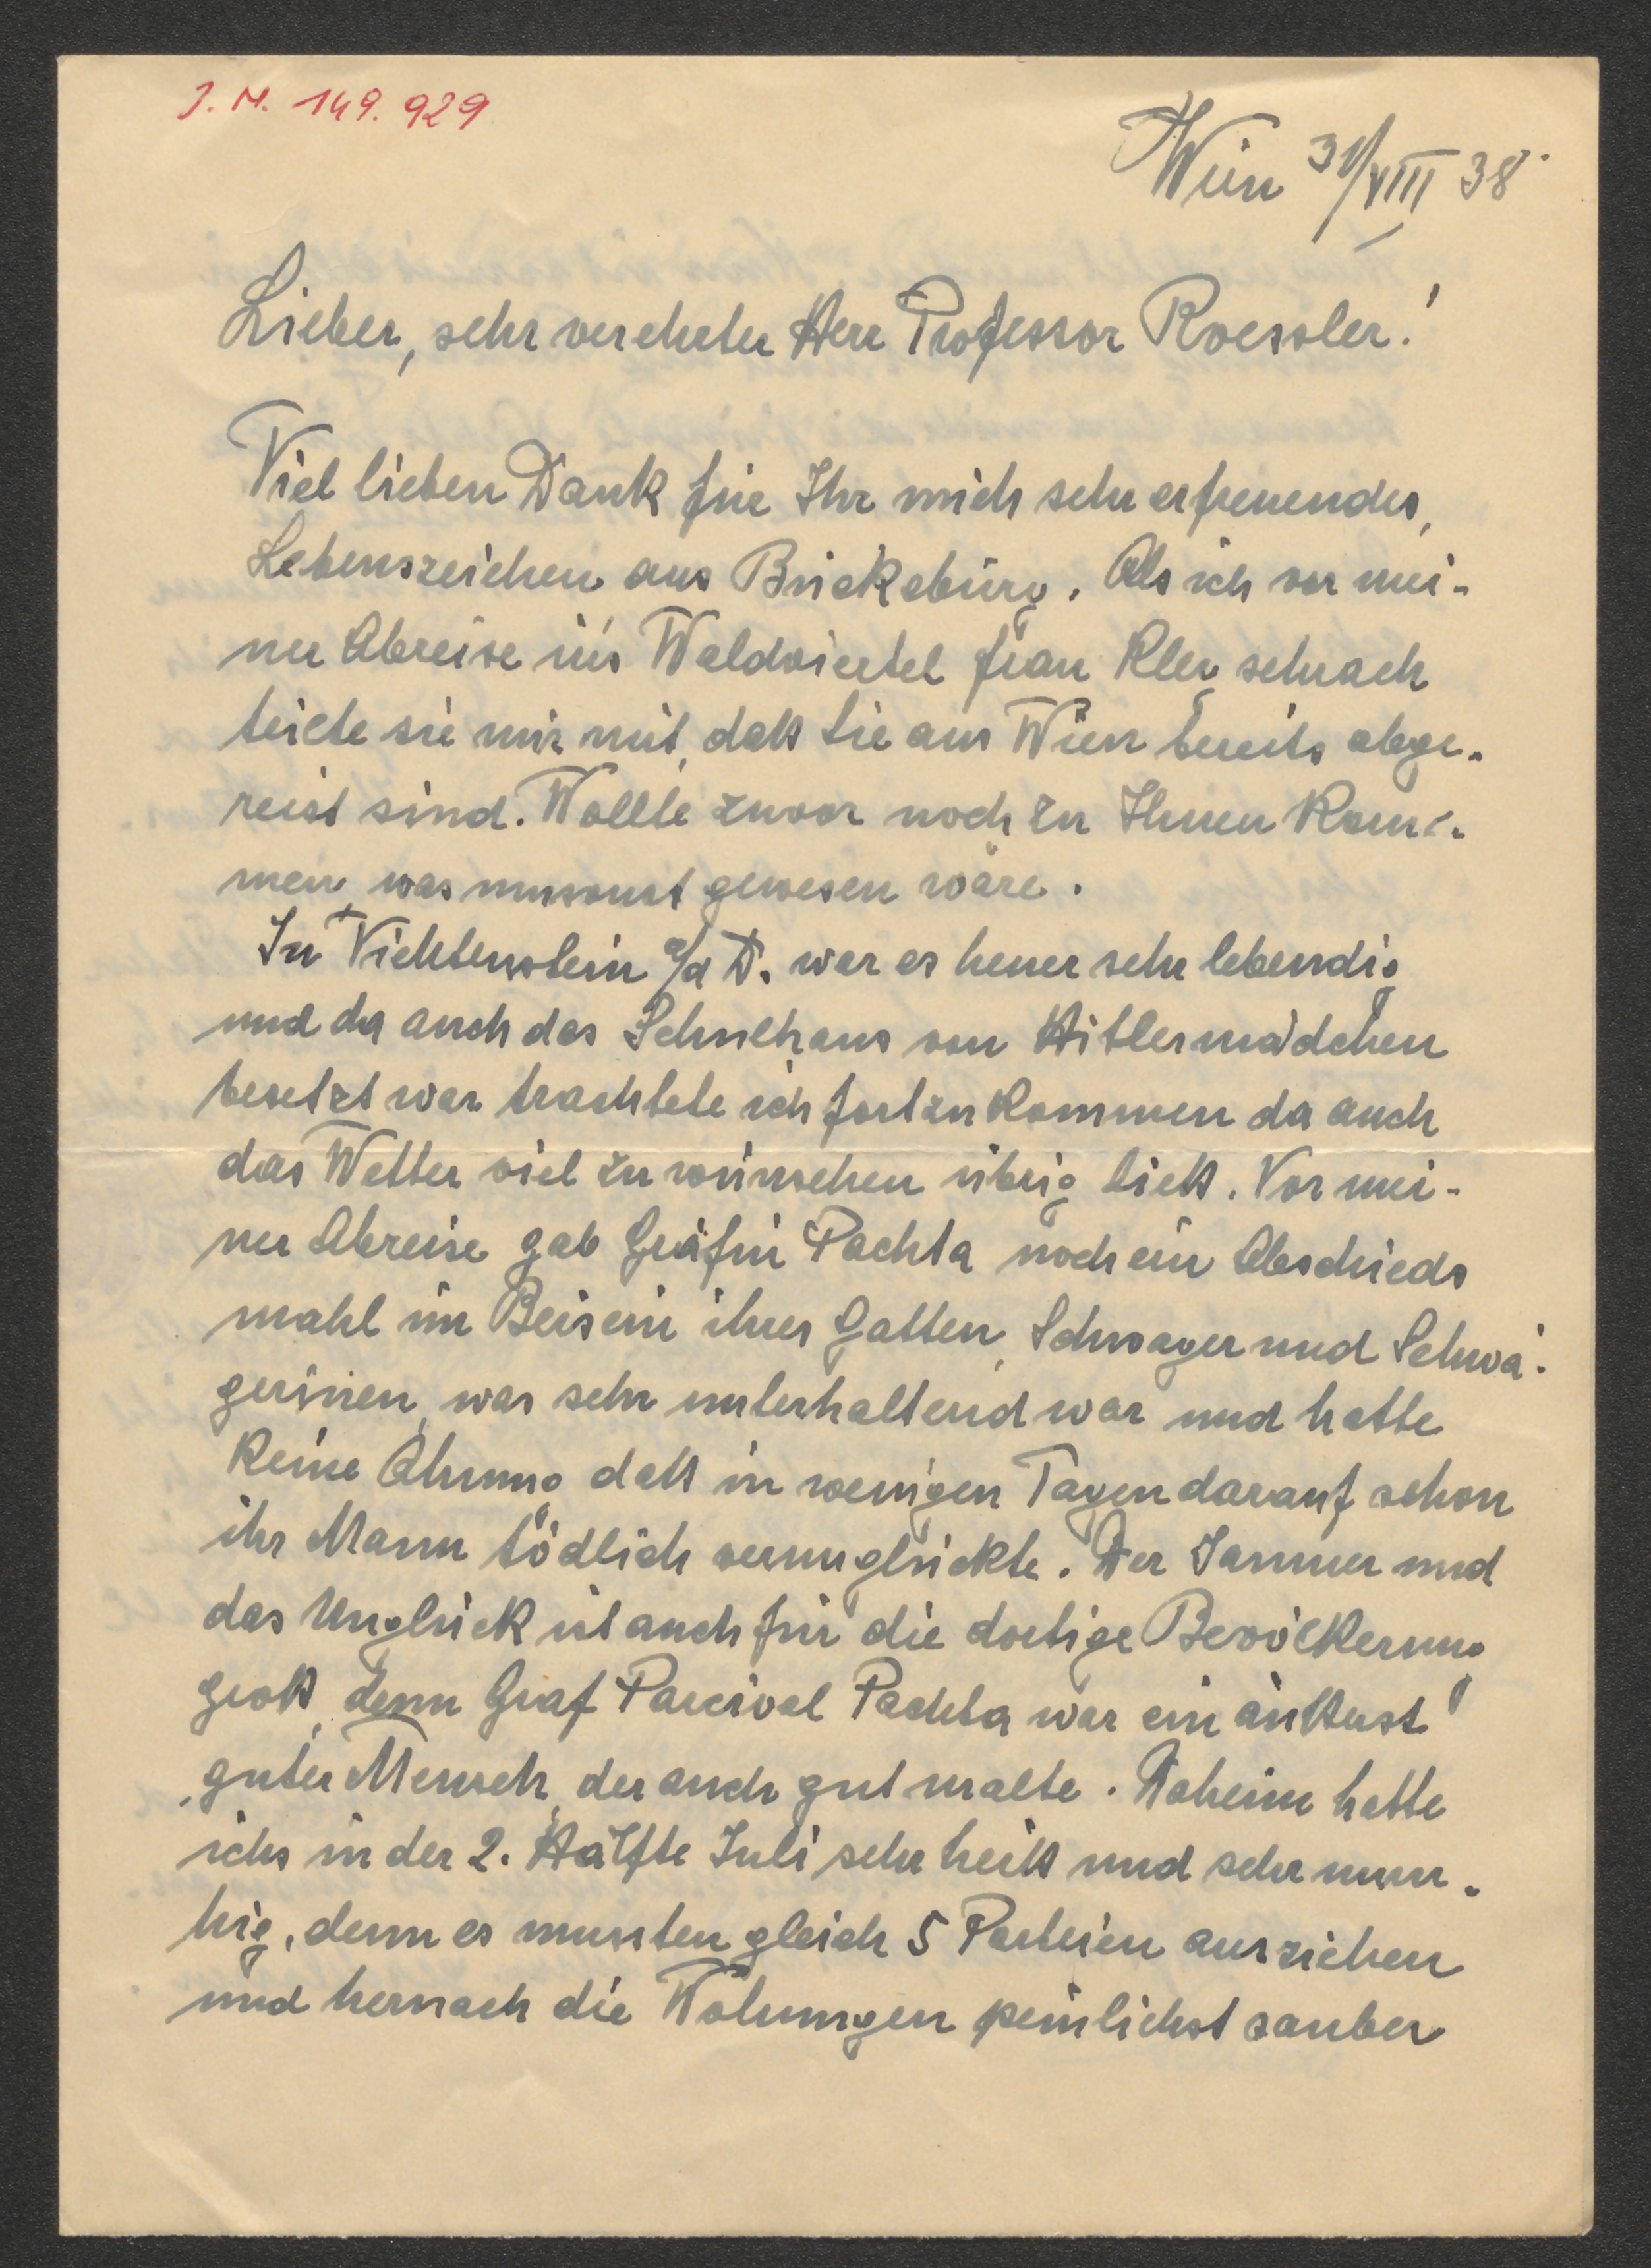 J. N. 149.929
Wien 31/VIII 38.
Lieber, sehr verehrter Herr Professor Roessler!
Viel lieben Dank für Ihr mich sehr erfreuendes,
Lebenszeichen aus Bückeburg. Als ich vor mei-
ner Abreise in's Waldviertel frau sprach
teilte sie mir mit, daß Sie aus Wien bereits abge-
reist sind. Wollte zuvor noch zu Ihnen kom-
men, was umsonst gewesen wäre.
In Vichtenstein a/d D. war es heuer sehr lebendig
und da auch das Schulhaus von Hitlermädchen
besetzt war trachtete ich fortzukommen da auch
das Wetter viel zu wünschen übrig ließ. Vor mei-
ner Abreise gab Gräfin Pachta noch ein Abschieds
mahl im Beisein ihres Gatten, Schwager und Schwä-
gerinen, was sehr unterhaltend war und hatte
keine Ahnung daß in wenigen Tagen darauf schon
ihr Mann tödlich verunglückte. Der Jammer und
das Unglück ist auch für die dortige Bevölkerung
groß, denn Graf Parcival Pachta war ein äußerst
guter Mensch, der auch gut malte. Daheim hatte
ichs in der 2. Hälfte Juli sehr heiß und sehr unru-
hig, denn es mussten gleich 5 Parteien ausziehen
und hernach die Wohungen peinlichst sauber